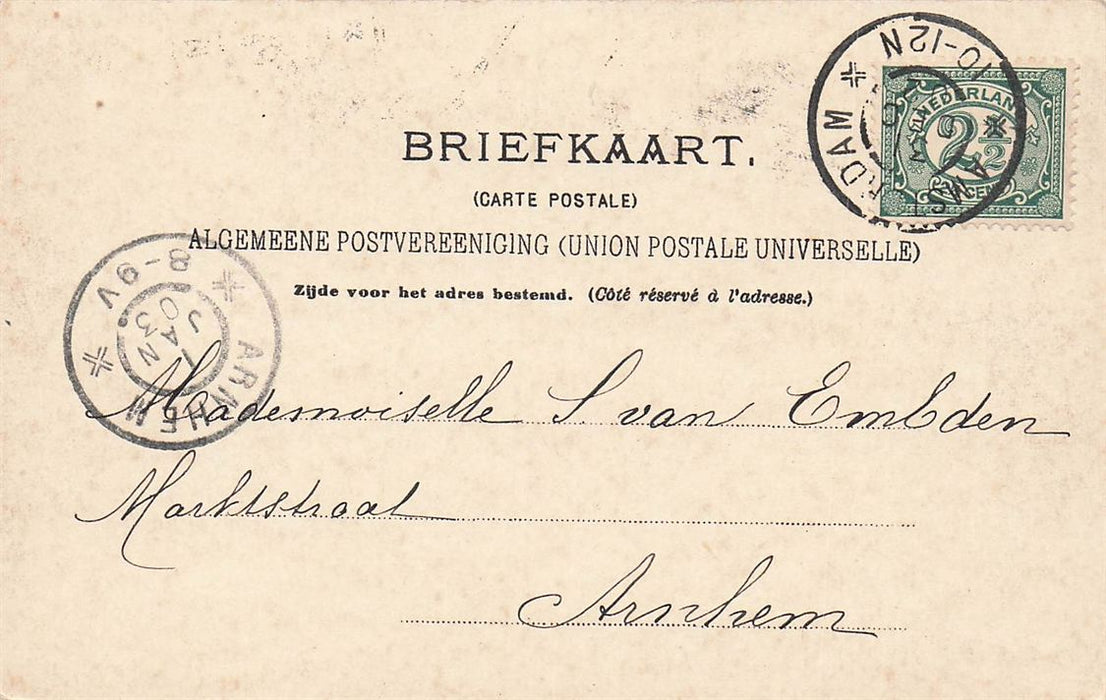 BRIEFKAART.
(CARTE POSTALE)
ALGEMEENE POSTVEREENIGING (UNION POSTALE UNIVERSELLE)
Zijde voor het adres bestemd. (Côté réservé à l'adresse.)
NEDERLAND
2 1/2
CENT
10-12N
ARNHEM
8-9V
1
JAN
03
Mademoiselle S van Embden
Marktstraat
Arnhem